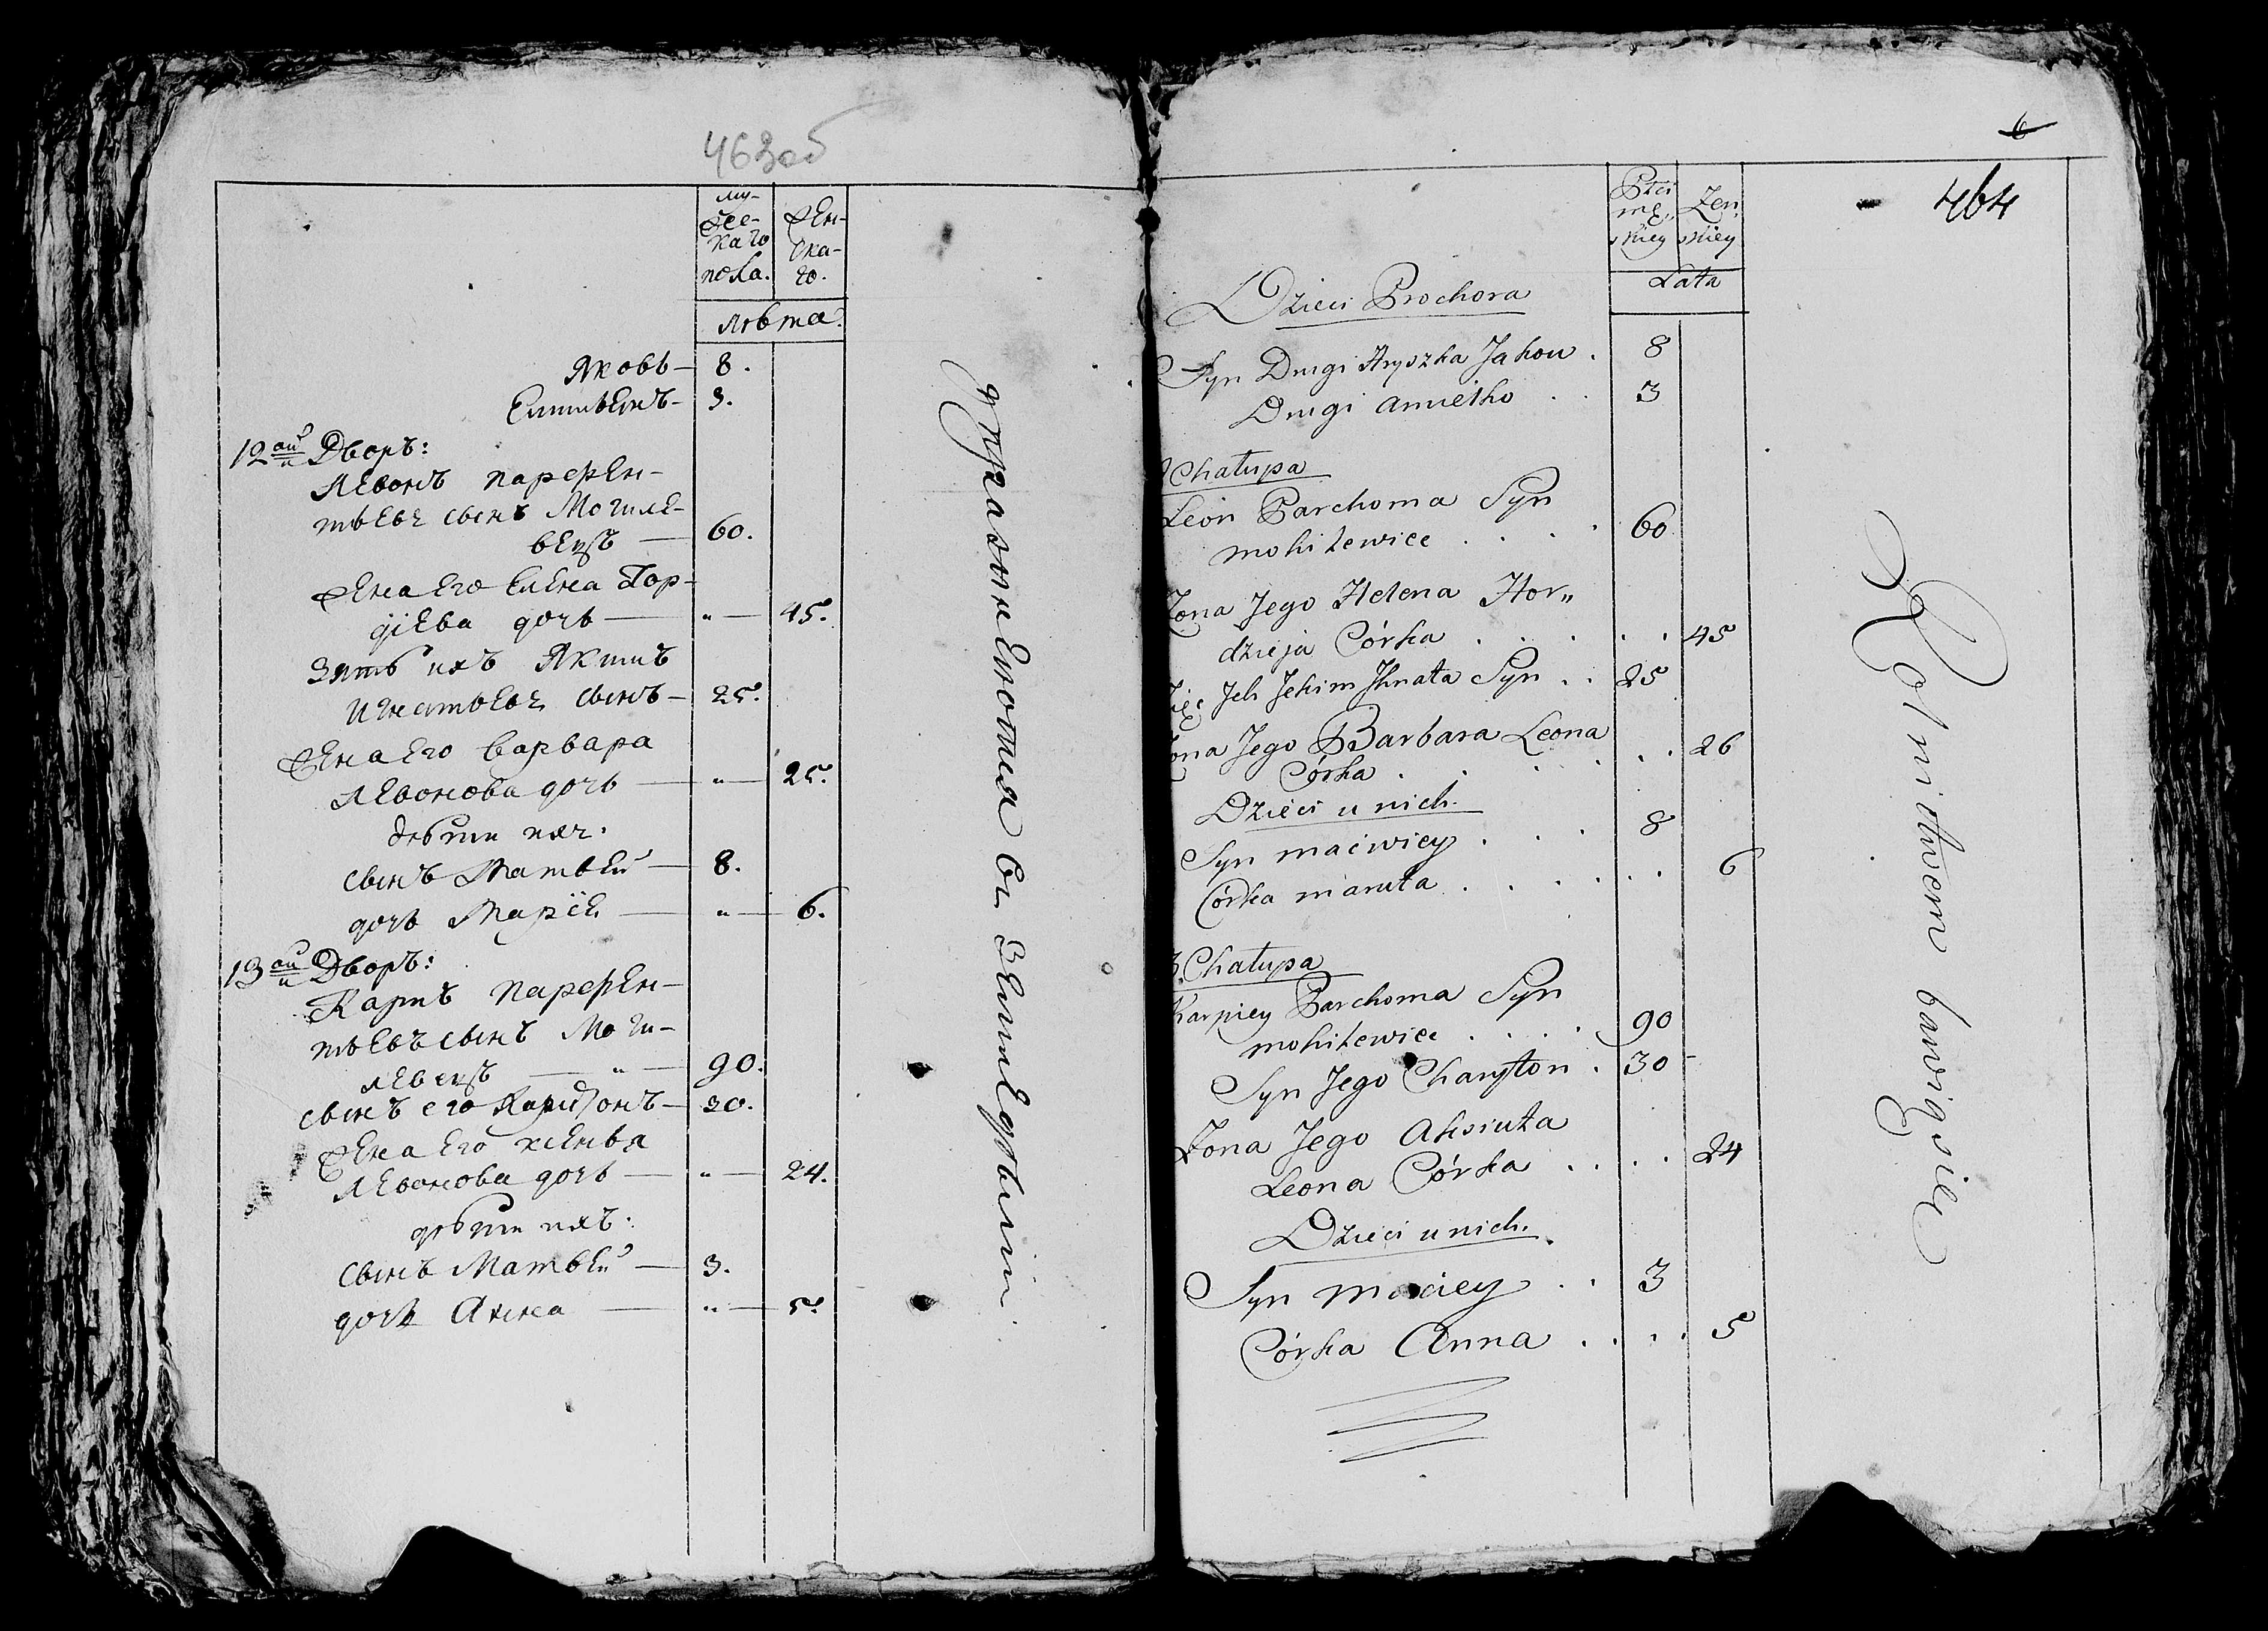 463 об
му-
жес-
каго
пола.
жен-
ска-
го.
лѣта.
Яковъ — 8.
Емельянъ — 3.
12ой Дворъ:
Левонъ парфен-
тьевъ сынъ Могиле-
вецъ — 60.
жена его Елена Гор-
дiева дочь — " — 45.
Зять ихъ Якимъ
Игнатьевъ сынъ — 25.
жена его Варвара
Левонова дочь — " — 25.
дѣти ихъ.
сынъ Матвѣй — 8.
дочь Марiя — " — 6.
13ой Дворъ:
Карпъ парфен-
тьевъ сынъ Моги-
левецъ — " — 90.
сынъ его Харитонъ — 30.
жена его
Левонова дочь — " — 24.
дѣти ихъ:
сынъ Матвѣй — 3.
дочь Анна — " — 5.
упражняются въ Земледѣлiи.
6
464
Płci
mę„
skiey
Żen
skiey
Lata
Dzieci Prochora
Syn Drugi Hryszka Jakow . 8
Drugi Amielko . . 3
Chałupa
Leon Parchoma Syn
mohilewiec . . . . 60
Żona Jego Helena Hor„
dzieja Córka . . . . . 45
Zięć Jch Jekim Jhnata Syn . . 25
Żona Jego Barbara Leona
Córka . . . . . . 26
Dzieci u nich.
Syn maćwiey . . . 8
Córka maruta . . . . . . 6
3 Chałupa
Karpiey Parchoma Syn
mohilewiec . . . . 90
Syn Jego Charyton . 30
Żona Jego Aksiuta
Leona Córka . . . . 24
Dzieci u nich.
Syn maciey . . 3
Córka Anna . . . . 5
Rolnictwem bawią się